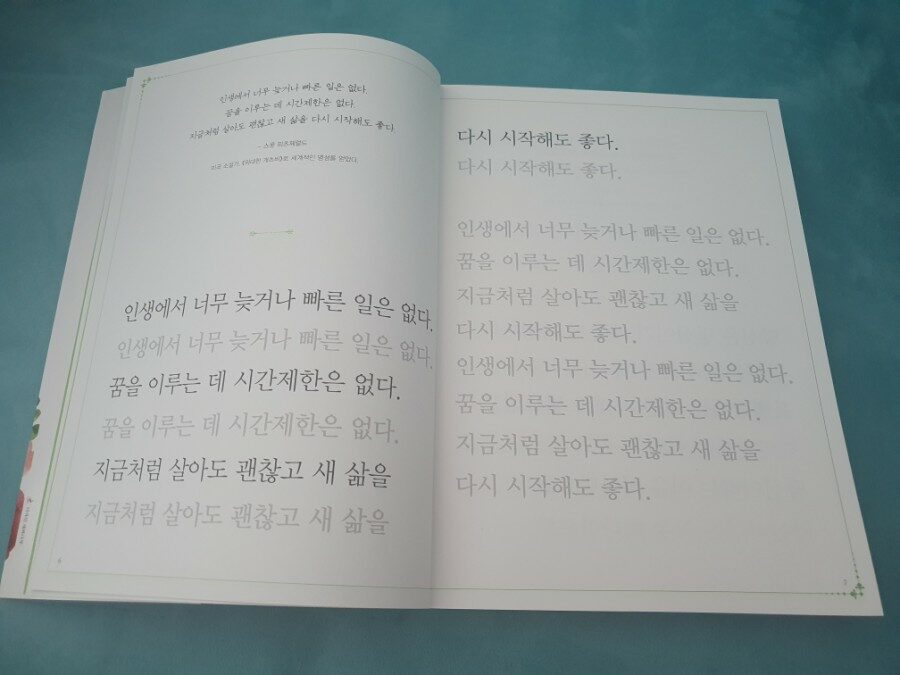 인생에서 너무 늦거나 빠른 일은 없다.
꿈을 이루는 데 시간제한은 없다.
지금처럼 살아도 괜찮고 새 삶을 다시 시작해도 좋다.
- 스콧 피츠제럴드
미국 소설가. 《위대한 개츠비》로 세계적인 명성을 얻었다.
인생에서 너무 늦거나 빠른 일은 없다.
인생에서 너무 늦거나 빠른 일은 없다.
꿈을 이루는 데 시간제한은 없다.
꿈을 이루는 데 시간제한은 없다.
지금처럼 살아도 괜찮고 새 삶을
지금처럼 살아도 괜찮고 새 삶을
6
다시 시작해도 좋다.
다시 시작해도 좋다.
인생에서 너무 늦거나 빠른 일은 없다.
꿈을 이루는 데 시간제한은 없다.
지금처럼 살아도 괜찮고 새 삶을
다시 시작해도 좋다.
인생에서 너무 늦거나 빠른 일은 없다.
꿈을 이루는 데 시간제한은 없다.
지금처럼 살아도 괜찮고 새 삶을
다시 시작해도 좋다.
7